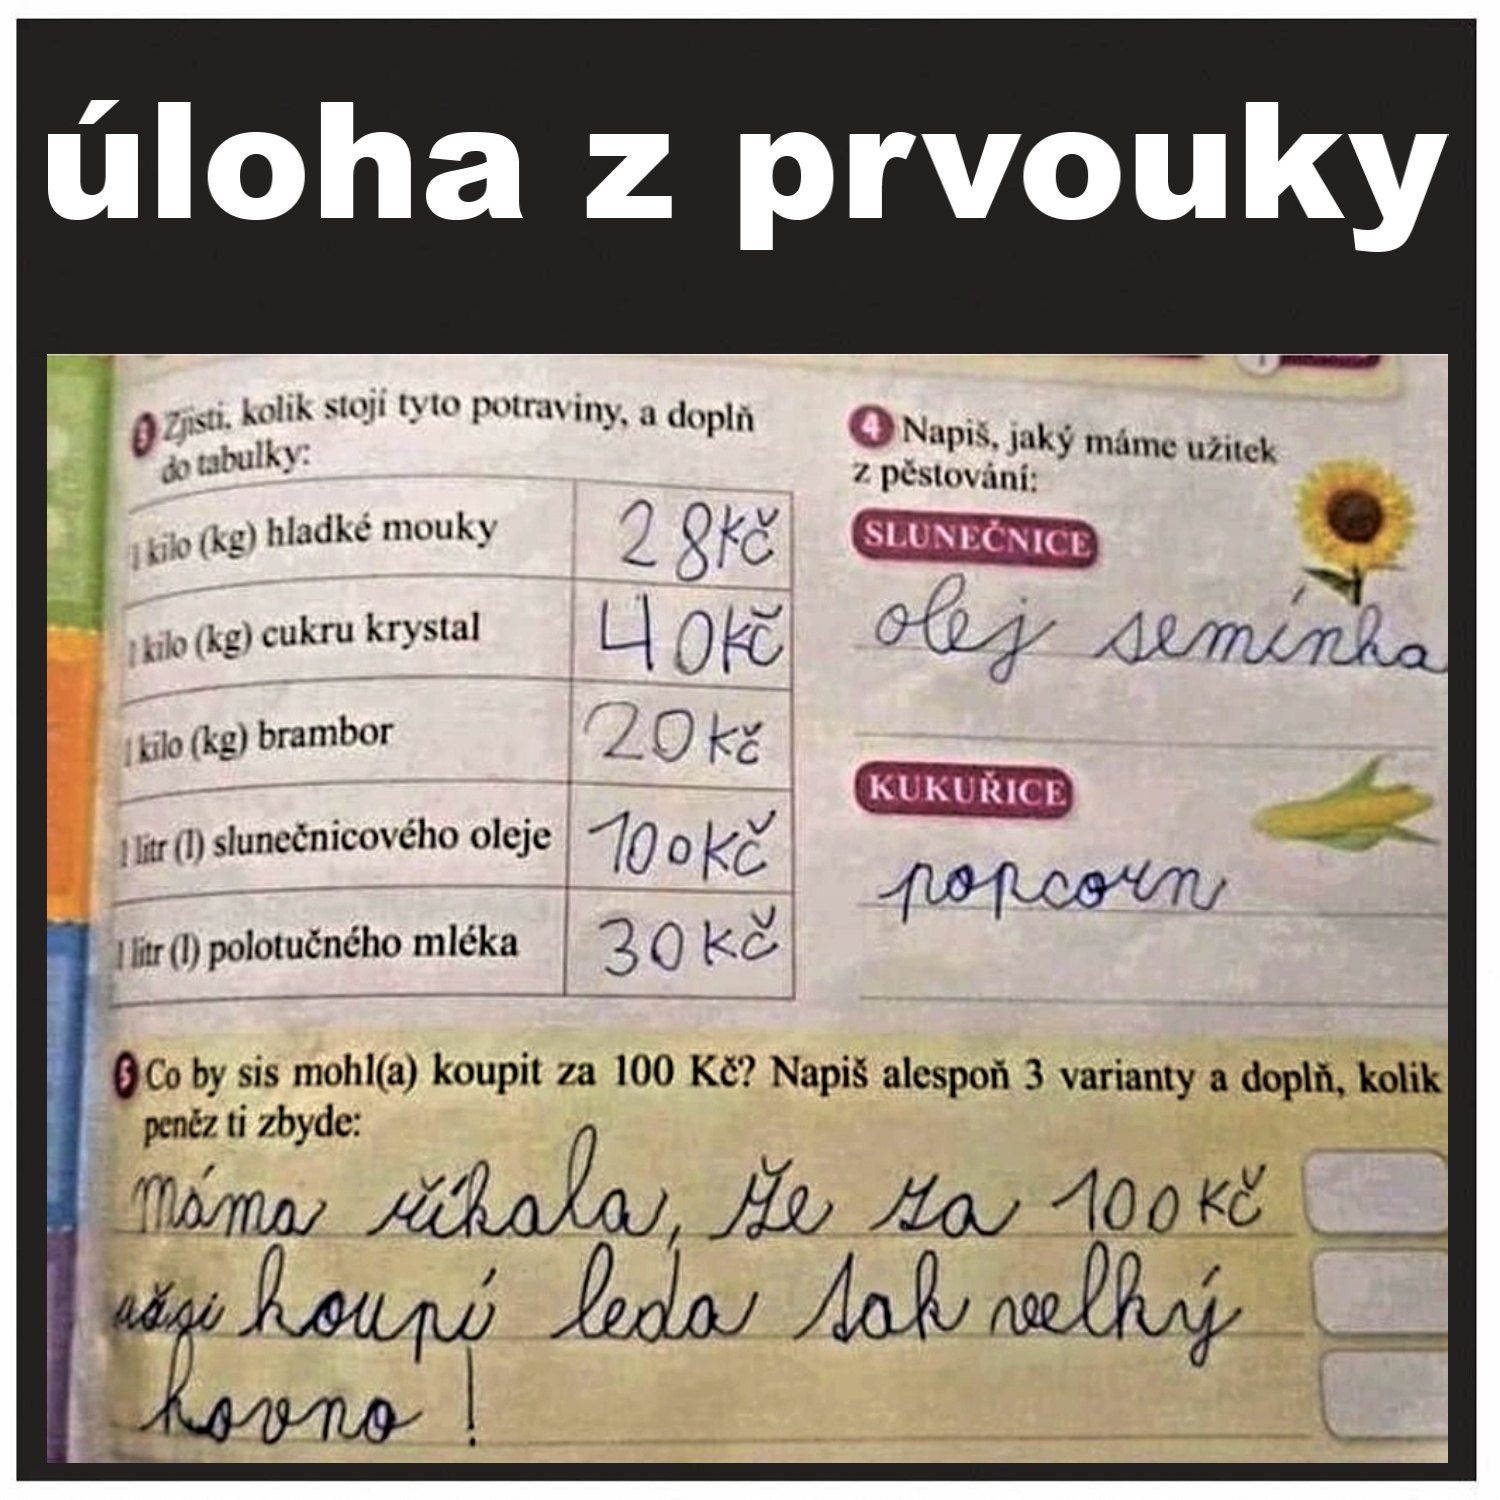 úloha z prvouky
3 Zjisti, kolik stojí tyto potraviny, a doplň
do tabulky:
1 kilo (kg) hladké mouky 28Kč
1 kilo (kg) cukru krystal 40Kč
1 kilo (kg) brambor 20Kč
1 litr (l) slunečnicového oleje 100Kč
1 litr (l) polotučného mléka 30Kč
4 Napiš, jaký máme užitek
z pěstování:
SLUNEČNICE
olej semínka
KUKUŘICE
popcorn
5 Co by sis mohl(a) koupit za 100 Kč? Napiš alespoň 3 varianty a doplň, kolik
peněz ti zbyde:
Máma říkala, že za 100 Kč
koupí leda tak velký
hovno!